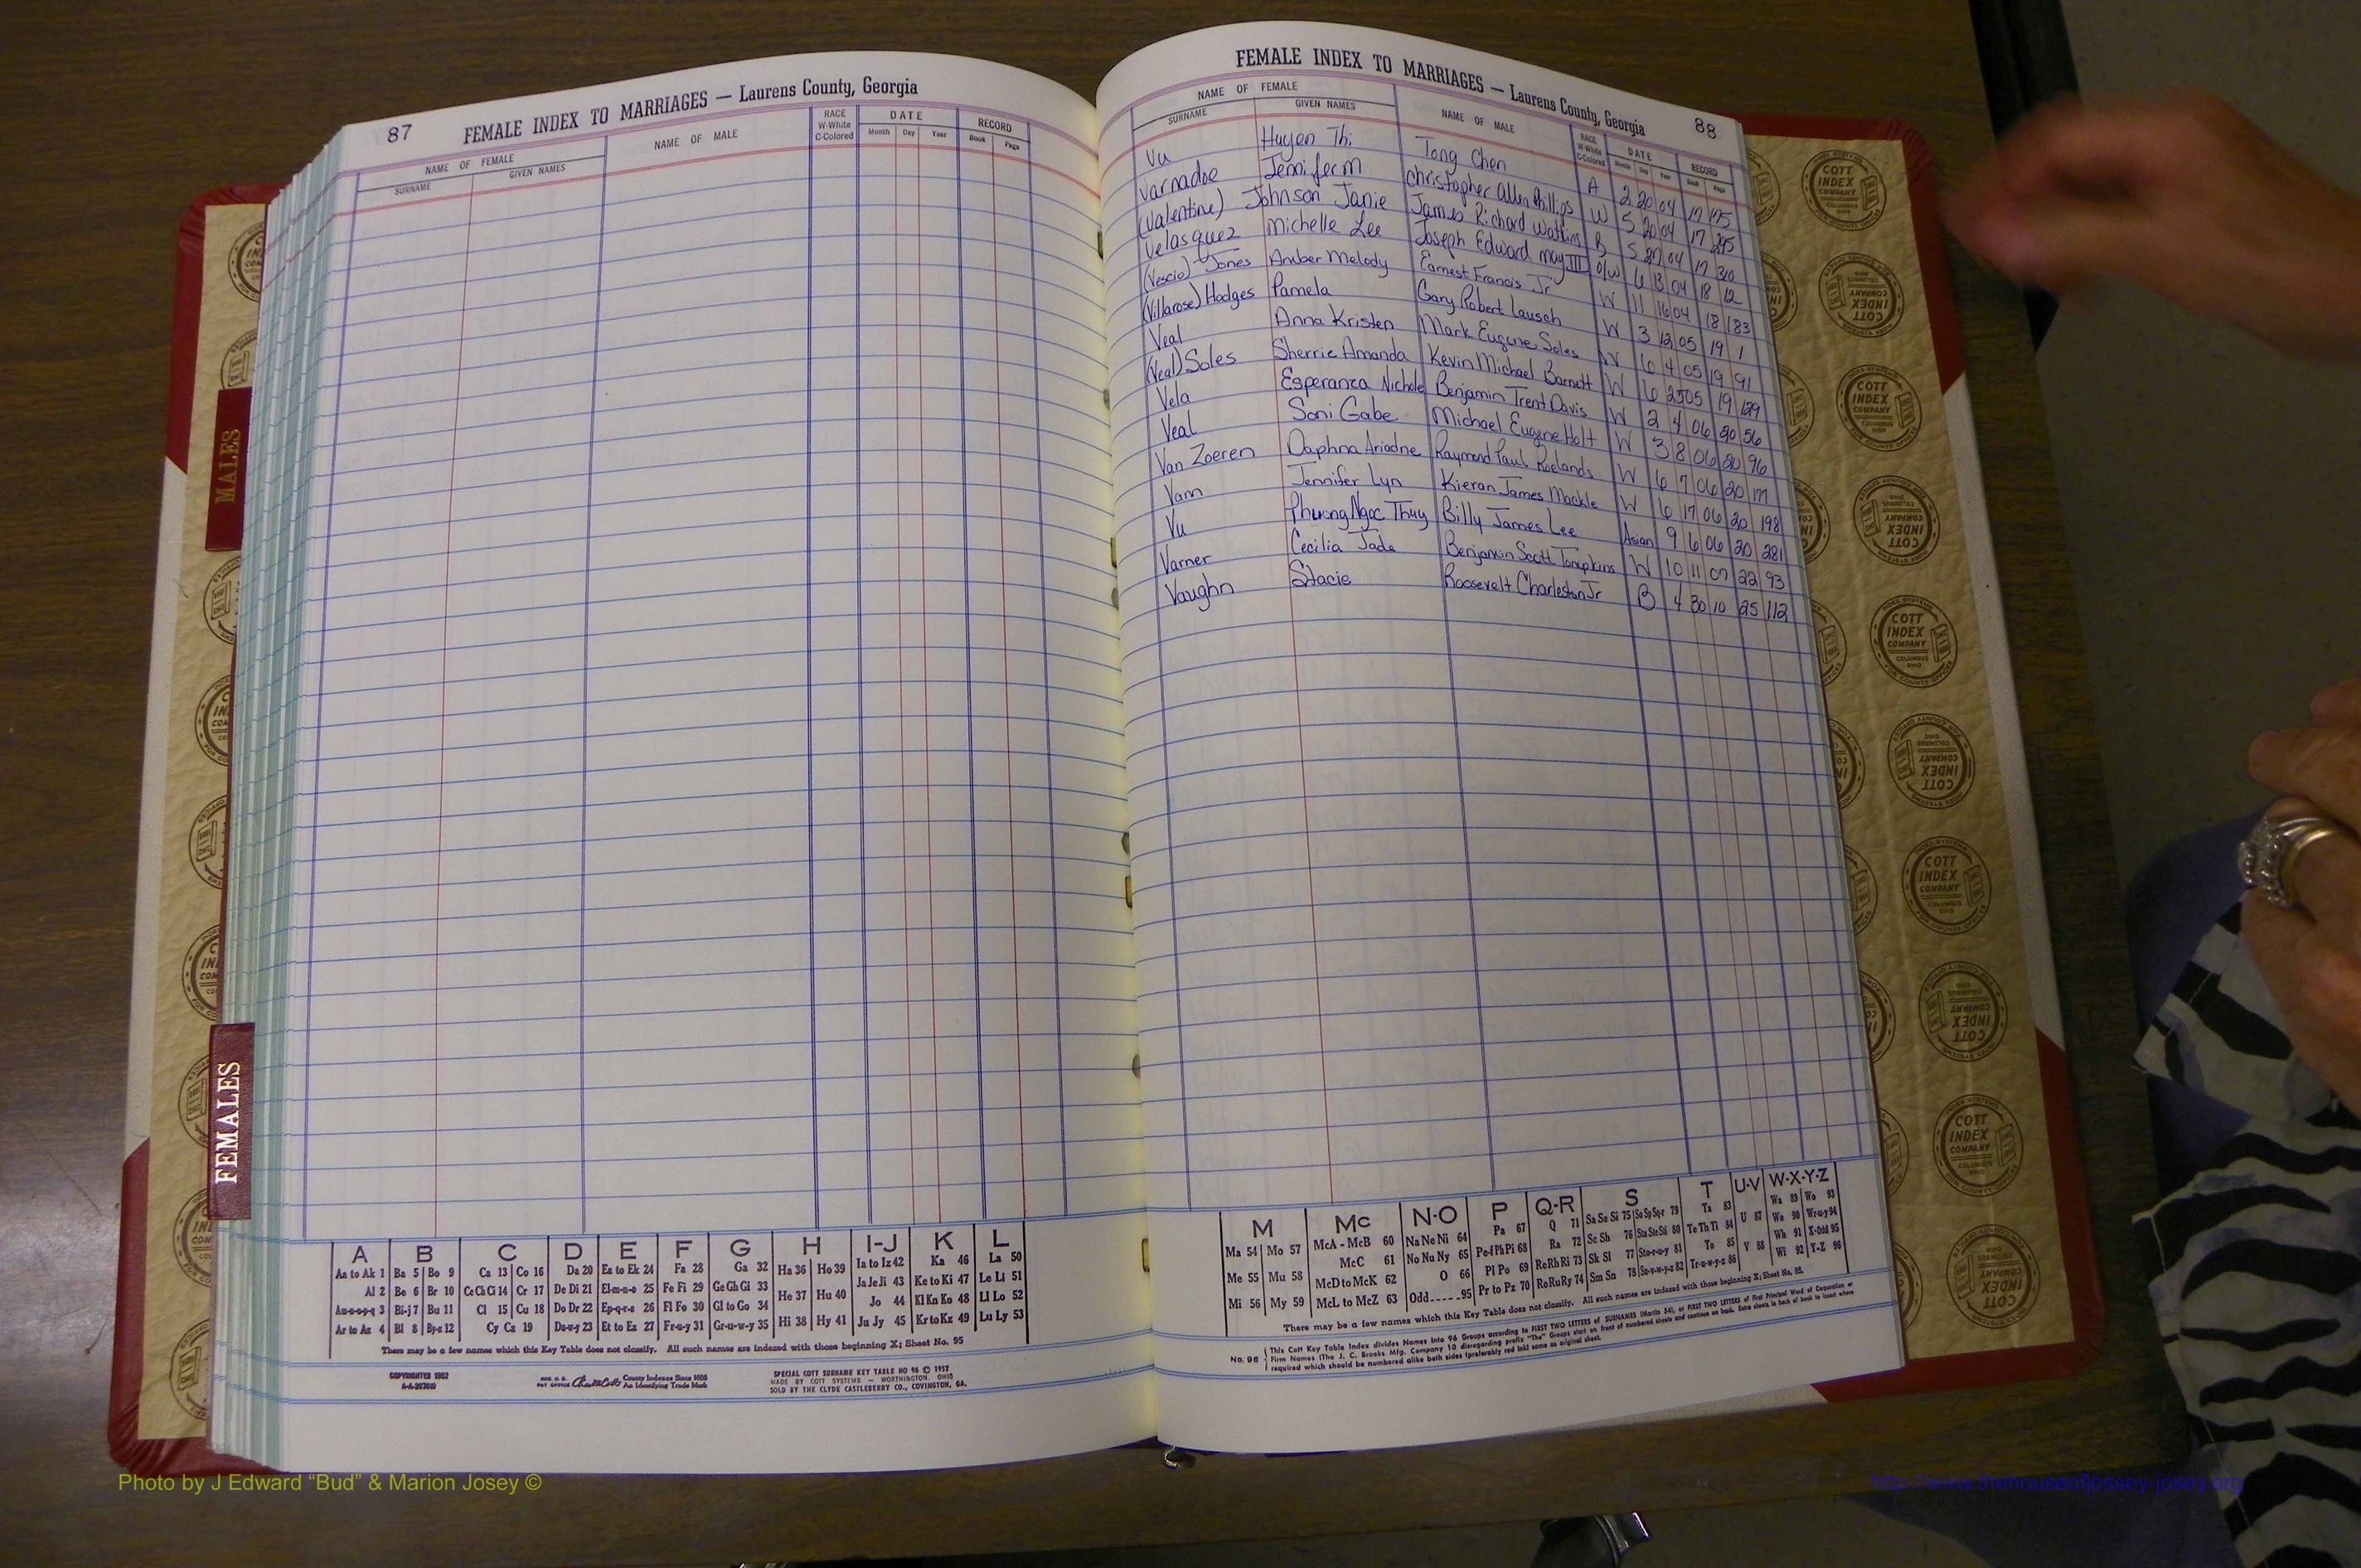 87
FEMALE INDEX TO MARRIAGES — Laurens County, Georgia
NAME OF FEMALE
SURNAME
GIVEN NAMES
NAME OF MALE
RACE
W-White
C-Colored
DATE
Month Day Year
RECORD
Book Page
FEMALE INDEX TO MARRIAGES — Laurens County, Georgia
88
NAME OF FEMALE
SURNAME
GIVEN NAMES
NAME OF MALE
RACE
W-White
C-Colored
DATE
Month Day Year
RECORD
Book Page
Vu Huyen Thi Tong Chen A 2 20 04 17 175
Varnadoe Jennifer M Christopher Allen Phillips W 5 20 04 17 295
(Valentine) Johnson Janie James Richard Watkins B 5 27 04 17 310
Velasquez Michelle Lee Joseph Edward May III O/W 6 13 04 18 12
(Vescio) Jones Amber Melody Earnest Francis Jr W 11 16 04 18 183
(Villarose) Hodges Pamela Gary Robert Lausch W 3 12 05 19 1
Veal Anna Kristen Mark Eugene Soles W 6 4 05 19 91
(Veal) Soles Sherrie Amanda Kevin Michael Barnett W 6 25 05 19 129
Vela Esperanza Nichole Benjamin Trent Davis W 2 4 06 20 56
Veal Soni Gabe Michael Eugene Holt W 3 8 06 20 96
Van Zoeren Daphna Ariadne Raymond Paul Roelands W 6 7 06 20 177
Vann Jennifer Lyn Kieran James Mackle W 6 17 06 20 198
Vu Phuong Ngoc Thuy Billy James Lee Asian 9 6 06 20 281
Varner Cecilia Jade Benjamin Scott Tompkins W 10 11 07 22 93
Vaughn Stacie Roosevelt Charleston Jr B 4 30 10 25 112
MALES
FEMALES
A B C D E F G H I-J K L
Aa to Ak 1 Ba 5 Bo 9 Ca 13 Co 16 Da 20 Ea to Ek 24 Fa 28 Ga 32 Ha 36 Ho 39 Ia to Iz 42 Ka 46 La 50
Al 2 Be 6 Br 10 Ce Ch Ci 14 Cr 17 De Di 21 El-m-n-o 25 Fe Fi 29 Ge Gh Gi 33 He 37 Hu 40 Ja Je Ji 43 Ke to Ki 47 Le Li 51
Am-n-o-p-q 3 Bi-j 7 Bu 11 Cl 15 Cu 18 Do Dr 22 Ep-q-r-s 26 Fl Fo 30 Gl to Go 34 Jo 44 Kl Kn Ko 48 Ll Lo 52
Ar to Az 4 Bl 8 By-z 12 Cy Cz 19 Du-w-y 23 Et to Ez 27 Fr-u-y 31 Gr-u-w-y 35 Hi 38 Hy 41 Ju Jy 45 Kr to Kz 49 Lu Ly 53
There may be a few names which this Key Table does not classify. All such names are indexed with those beginning X; Sheet No. 95
COPYRIGHTED 1952
County Indexes Since 1888
An Identifying Trade Mark
SPECIAL COTT SURNAME KEY TABLE NO 96 © 1957
MADE BY COTT SYSTEMS — WORTHINGTON, OHIO
SOLD BY THE CLYDE CASTLEBERRY CO., COVINGTON, GA.
M Mc N-O P Q-R S T U-V W-X-Y-Z
Ma 54 Mo 57 McA - McB 60 Na Ne Ni 64 Pa 67 Q 71 Sa Se Si 75 So Sp Sq-r 79 Ta 83 U 87 Wa 89 Wo 93
Me 55 Mu 58 McC 61 No Nu Ny 65 Pe-f Ph Pi 68 Ra 72 Sc Sh 76 Sta Ste Sti 80 Te Th Ti 84 We 90 Wr-u-y 94
Mi 56 My 59 McD to McK 62 O 66 Pl Po 69 Re Rh Ri 73 Sk Sl 77 Sto-r-u-y 81 To 85 V 88 Wh 91 X-Odd 95
McL to McZ 63 Odd 95 Pr to Pz 70 Ro Ru Ry 74 Sm Sn 78 Su-v-w-y-z 82 Tr-u-w-y-z 86 Wi 92 Y-Z 96
There may be a few names which this Key Table does not classify. All such names are indexed with those beginning X; Sheet No. 95.
No. 96 This Cott Key Table Index divides Names into 96 Groups according to FIRST TWO LETTERS of SURNAMES (Martin 54), or FIRST TWO LETTERS of First Principal Word of Corporation or
Firm Names (The J. C. Brooks Mfg. Company 10 disregarding prefix "The" Groups start on front of numbered sheets and continue on back. Extra sheets in back of book to insert where
required which should be numbered alike both sides (preferably red ink) same as original sheet.
COTT
INDEX
COMPANY
COLUMBUS
OHIO
INDEX SYSTEMS
FOR COUNTY OFFICES
Photo by J Edward “Bud” & Marion Josey ©
http://www.thehouseofjossey-josey.org